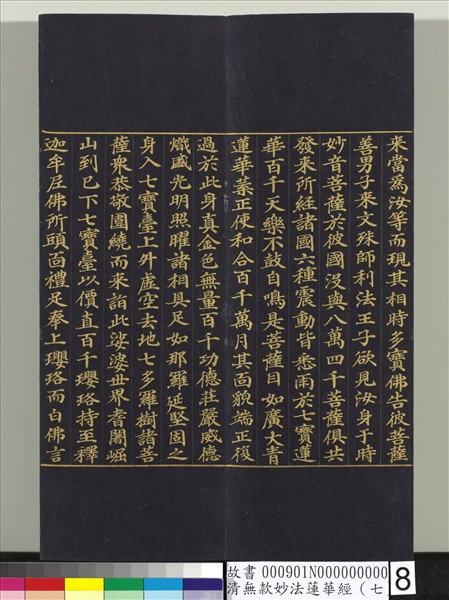 來當為汝等而現其相時多寶佛告彼菩薩
善男子来文殊師利法王子欲見汝身于時
妙音菩薩於彼國沒與八萬四千菩薩俱共
發来所經諸國六種震動皆悉雨於七寶蓮
華百千天樂不鼓自鳴是菩薩目如廣大青
蓮華葉正使和合百千萬月其面貌端正復
過於此身真金色無量百千功德莊嚴威德
熾盛光明照曜諸相具足如那羅延堅固之
身入七寶臺上升虛空去地七多羅樹諸菩
薩衆恭敬圍繞而來詣此娑婆世界耆闍崛
山到已下七寶臺以價直百千瓔珞持至釋
迦牟尼佛所頭面禮足奉上瓔珞而白佛言
故書 000901N000000000
清無款妙法蓮華經（七
8